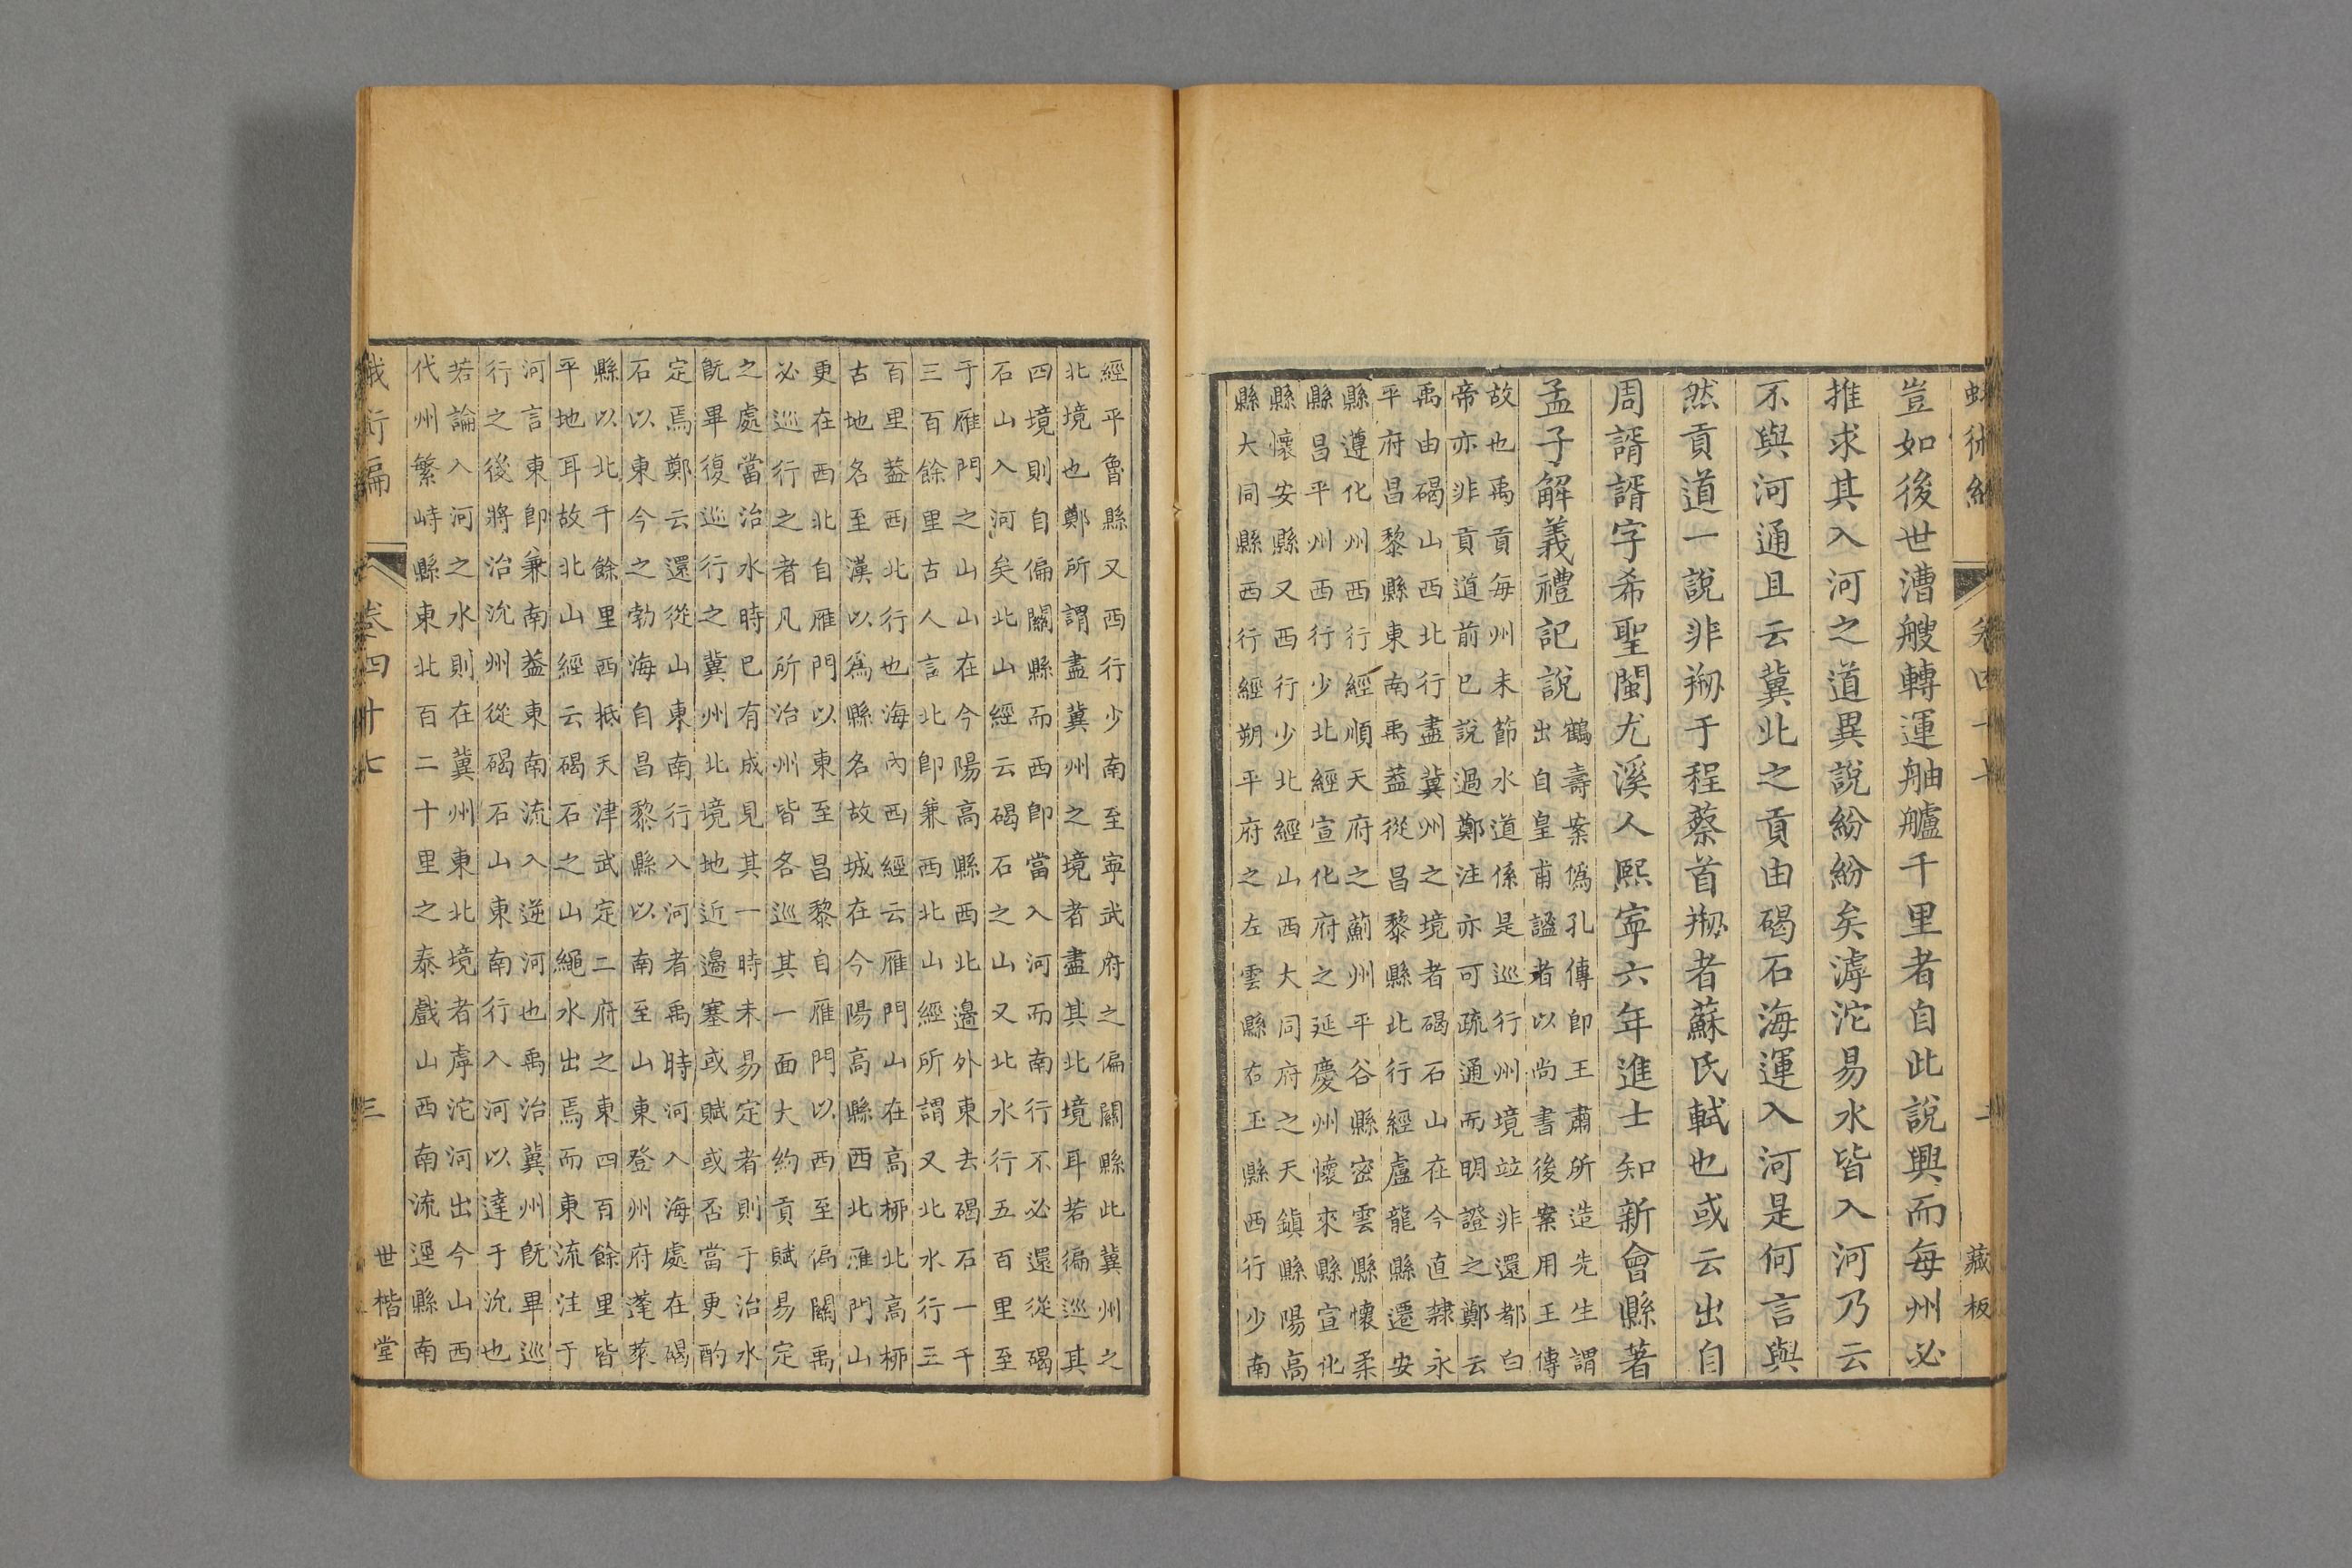 豈如後世漕艘轉運舳艫千里者自此說興而每州必
推求其入河之道異說紛紛矣滹沱易水皆入河乃云
不與河通且云冀北之貢由碣石海運入河是何言與
然貢道一說非刱于程蔡首刱者蘇氏軾也或云出自
周諝諝字希聖閩尤溪人熙寧六年進士知新會縣著
孟子解義禮記說
鶴壽案偽孔傳卽王肅所造先生謂
出自皇甫謐者以尚書後案用王傳
故也禹貢每州末節水道係是巡行州境竝非還都白
帝亦非貢道前已說過鄭注亦可疏通而明證之鄭云
禹由碣山西北行盡冀州之境者碣石山在今直隸永
平府昌黎縣東南禹葢從昌黎縣北行經盧龍縣遷安
縣遵化州西行經順天府之薊州平谷縣密雲縣懷柔
縣昌平州西行少北經宣化府之延慶州懷來縣宣化
縣懷安縣又西行少北經山西大同府之天鎮縣陽高
縣大同縣西行經朔平府之左雲縣右玉縣西行少南
藏板
經平魯縣又西行少南至寧武府之偏關縣此冀州之
北境也鄭所謂盡冀州之境者盡其北境耳若徧巡其
四境則自偏關縣而西卽當入河而南行不必還從碣
石山入河矣北山經云碣石之山又北水行五百里至
于雁門之山山在今陽高縣西北邊外東去碣石一千
三百餘里古人言北卽兼西北山經所謂又北水行三
百里葢西北行也海內西經云雁門山在高桺北高桺
古地名至漢以爲縣名故城在今陽高縣西北雁門山
更在西北自雁門以東至昌黎自雁門以西至偏關禹
必巡行之者凡所治州皆各巡其一面大約貢賦易定
之處當治水時已有成見其一時未易定者則于治水
旣畢復巡行之冀州北境地近邊塞或賦或否當更酌
定焉鄭云還從山東南行入河者禹時河入海處在碣
石以東今之勃海自昌黎縣以南至山東登州府蓬萊
縣以北千餘里西抵天津武定二府之東四百餘里皆
平地耳故北山經云碣石之山繩水出焉而東流注于
河言東卽兼南葢東南流入逆河也禹治冀州旣畢巡
行之後將治沇州從碣石山東南行入河以達于沇也
若論入河之水則在冀州東北境者虖沱河出今山西
代州繁峙縣東北百二十里之泰戲山西南流逕縣南
卷四十七
三
世楷堂